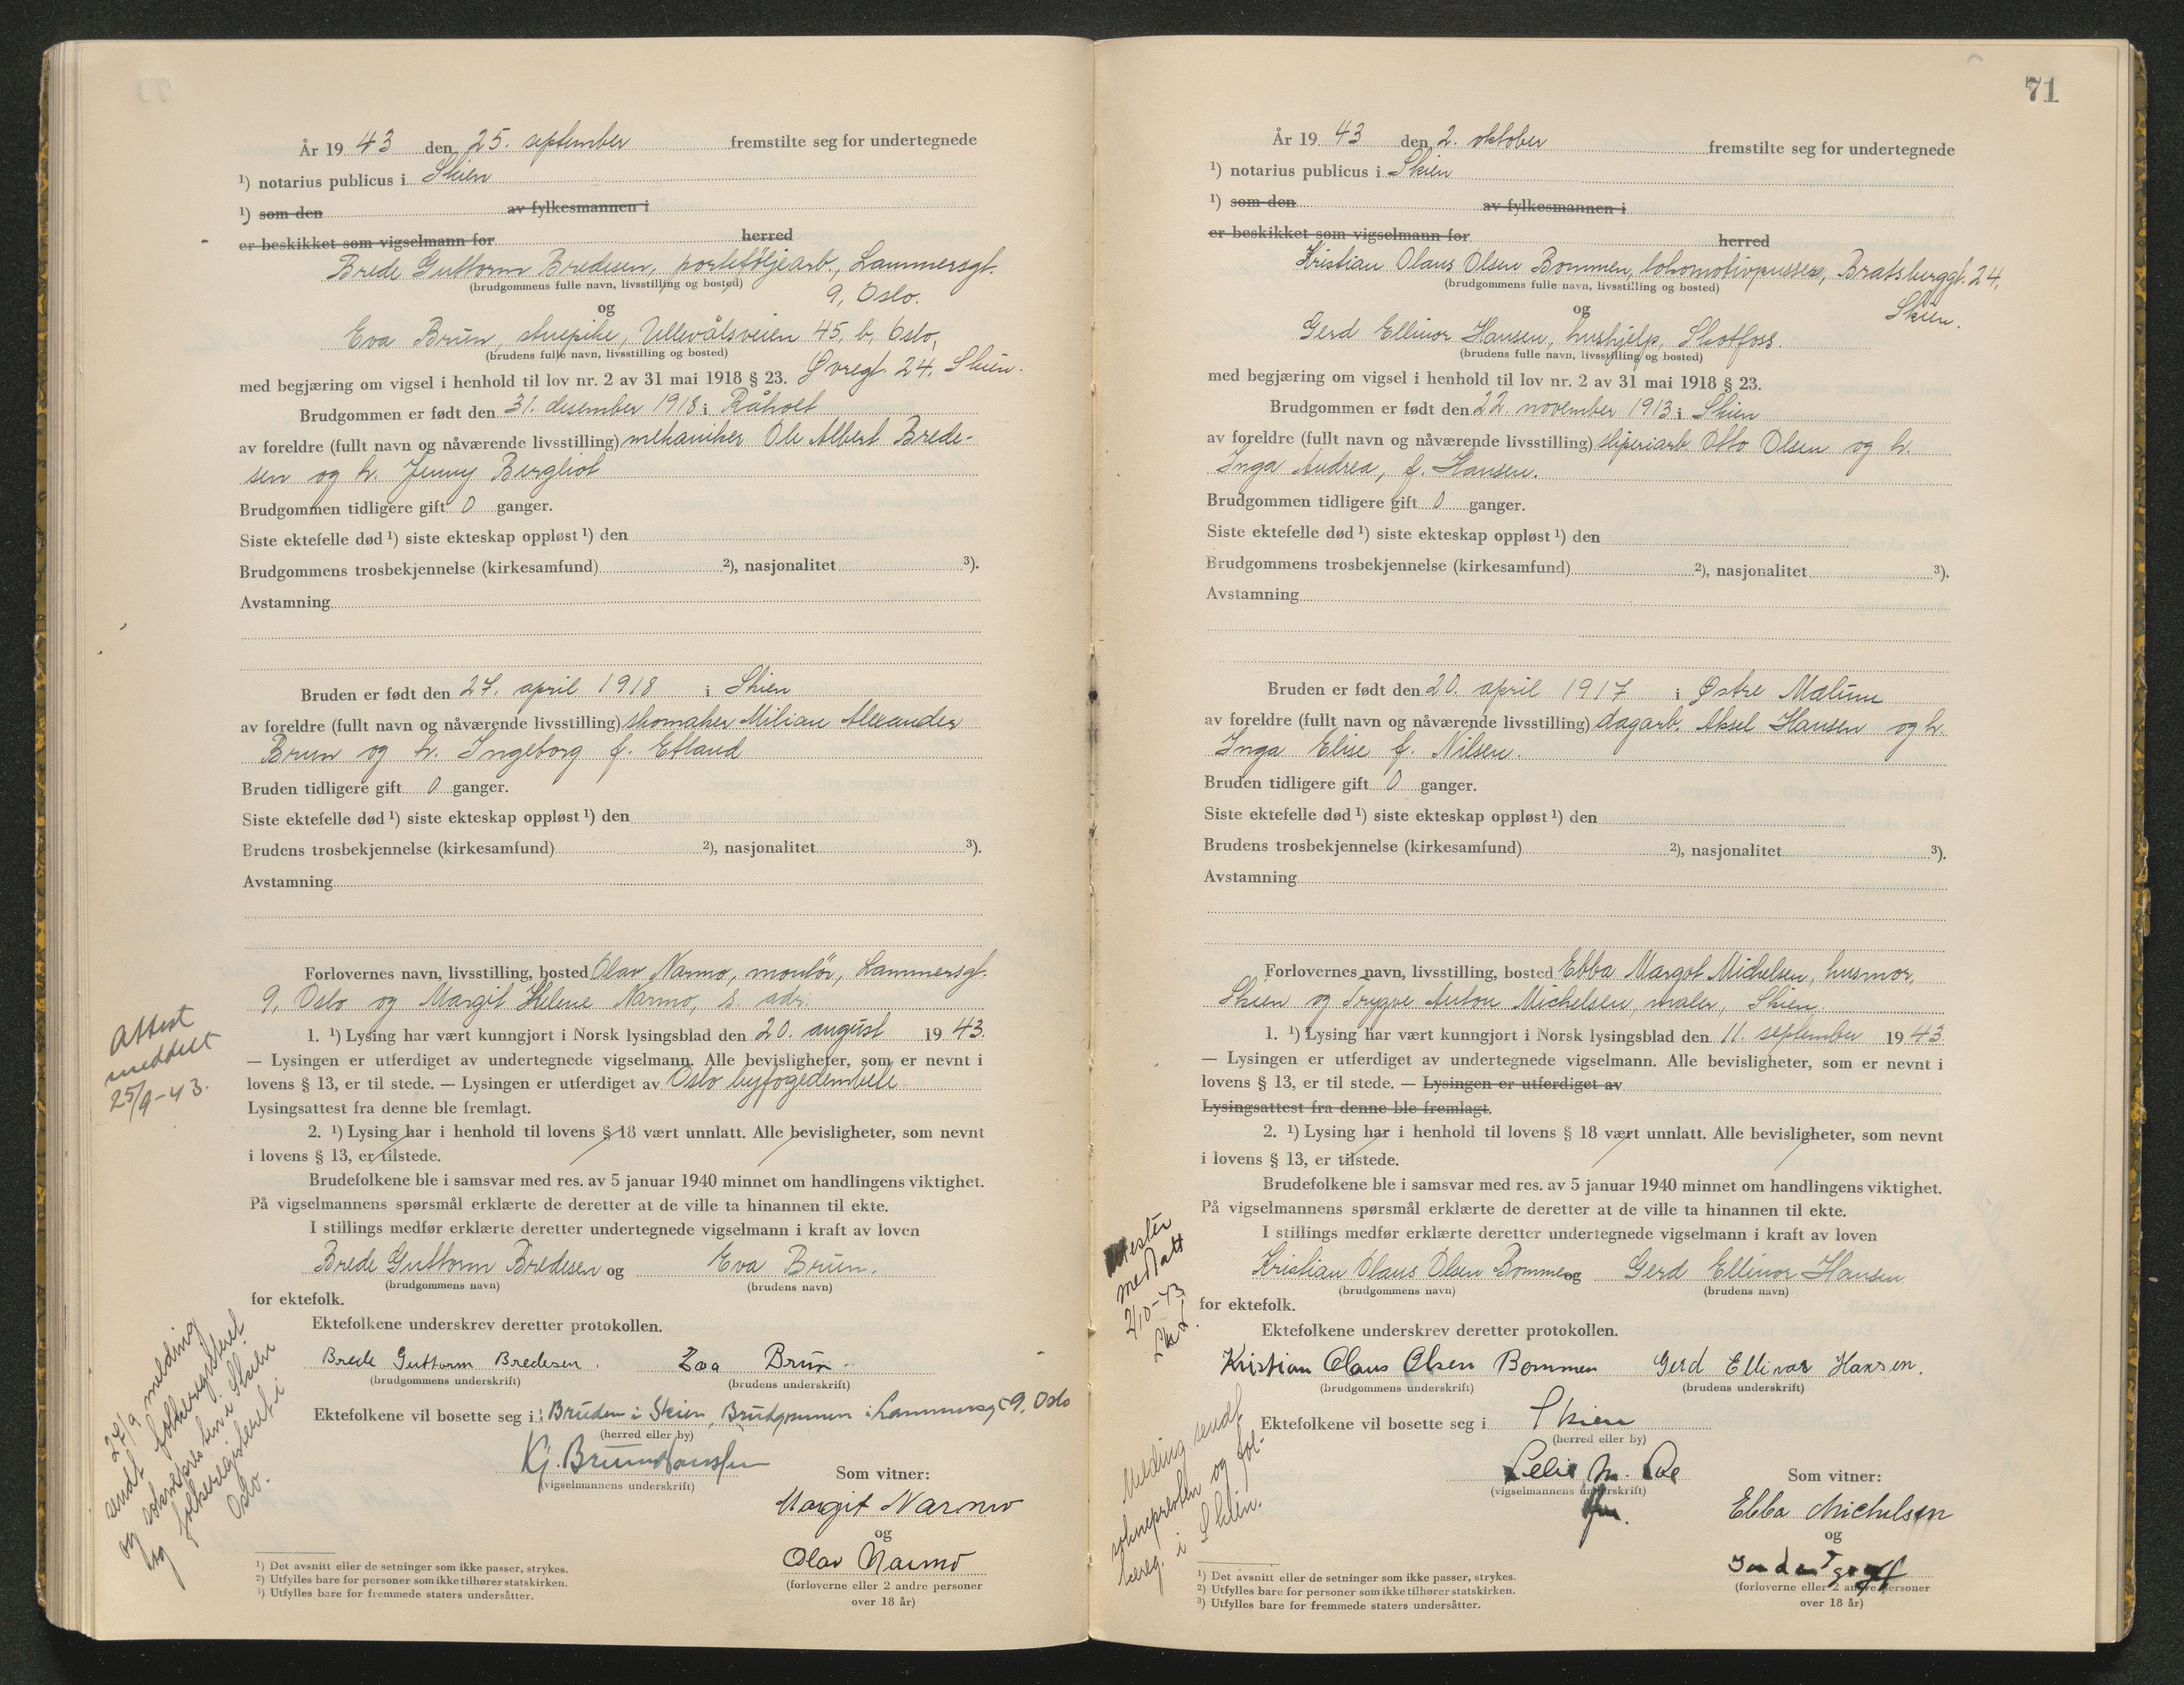 År 19 43 den 25. september fremstilte seg for undertegnede
¹) notarius publicus i Skien
¹) som den av fylkesmannen i
er beskikket som vigselmann for herred
Brede Guttorm Bredesen, porteføljearb., Lammersgt.
(brudgommens fulle navn, livsstilling og bosted)
9, Oslo.
og
Eva Brun, stuepike, Ullevålsveien 45, b, Oslo,
(brudens fulle navn, livsstilling og bosted)
Øvregt. 24. Skien.
med begjæring om vigsel i henhold til lov nr. 2 av 31 mai 1918 § 23.
Brudgommen er født den 31. desember 1918 i Råholt
av foreldre (fullt navn og nåværende livsstilling) mekaniker Ole Albert Brede-
sen og h. Jenny Bergliot
Brudgommen tidligere gift 0 ganger.
Siste ektefelle død ¹) siste ekteskap oppløst ¹) den
Brudgommens trosbekjennelse (kirkesamfund) ²), nasjonalitet ³).
Avstamning
Bruden er født den 27. april 1918 i Skien
av foreldre (fullt navn og nåværende livsstilling) skomaker Milian Alexander
Brun og h. Ingeborg f. Efland
Bruden tidligere gift 0 ganger.
Siste ektefelle død ¹) siste ekteskap oppløst ¹) den
Brudens trosbekjennelse (kirkesamfund) ²), nasjonalitet ³).
Avstamning
Forlovernes navn, livsstilling, bosted Olav Narmo, montör, Lammersgt.
9, Oslo og Margit Helene Narmo, s. adr.
1. ¹) Lysing har vært kunngjort i Norsk lysingsblad den 20. august 19 43.
— Lysingen er utferdiget av undertegnede vigselmann. Alle bevisligheter, som er nevnt i
lovens § 13, er til stede. — Lysingen er utferdiget av Oslo byfogedembete
Lysingsattest fra denne ble fremlagt.
2. ¹) Lysing har i henhold til lovens § 18 vært unnlatt. Alle bevisligheter, som nevnt
i lovens § 13, er tilstede.
Brudefolkene ble i samsvar med res. av 5 januar 1940 minnet om handlingens viktighet.
På vigselmannens spørsmål erklærte de deretter at de ville ta hinannen til ekte.
I stillings medfør erklærte deretter undertegnede vigselmann i kraft av loven
Brede Guttorm Bredesen og Eva Brun.
(brudgommens navn) (brudens navn)
for ektefolk.
Ektefolkene underskrev deretter protokollen.
Brede Guttorm Bredesen. Eva Brun.
(brudgommens underskrift) (brudens underskrift)
Ektefolkene vil bosette seg i: Bruden i Skien, Brudgommen i Lammersgt 9, Oslo
(herred eller by)
Kj. Bruun Hanssen
(vigselmannens underskrift)
Som vitner:
Margit Narmo
og
Olav Narmo
(forloverne eller 2 andre personer
over 18 år)
¹) Det avsnitt eller de setninger som ikke passer, strykes.
²) Utfylles bare for personer som ikke tilhører statskirken.
³) Utfylles bare for fremmede staters undersåtter.
Attest
meddelt
25/9-43.
27/9 melding
sendt folkeregisteret
og sokneprestem i Skien
og folkeregisteret i
Oslo.
71
År 19 43 den 2. oktober fremstilte seg for undertegnede
¹) notarius publicus i Skien
¹) som den av fylkesmannen i
er beskikket som vigselmann for herred
Kristian Olaus Olsen Bommen, lokomotivpusser, Bratsberggt. 24,
(brudgommens fulle navn, livsstilling og bosted)
Skien.
og
Gerd Ellinor Hansen, hushjelp, Skotfoss.
(brudens fulle navn, livsstilling og bosted)
med begjæring om vigsel i henhold til lov nr. 2 av 31 mai 1918 § 23.
Brudgommen er født den 22. november 1913 i Skien
av foreldre (fullt navn og nåværende livsstilling) sliperiarb. Otto Olsen og h.
Inga Andrea, f. Hansen.
Brudgommen tidligere gift 0 ganger.
Siste ektefelle død ¹) siste ekteskap oppløst ¹) den
Brudgommens trosbekjennelse (kirkesamfund) ²), nasjonalitet ³).
Avstamning
Bruden er født den 20. april 1917 i Østre Melum
av foreldre (fullt navn og nåværende livsstilling) dagarb. Aksel Hansen og h.
Inga Elise f. Nilsen.
Bruden tidligere gift 0 ganger.
Siste ektefelle død ¹) siste ekteskap oppløst ¹) den
Brudens trosbekjennelse (kirkesamfund) ²), nasjonalitet ³).
Avstamning
Forlovernes navn, livsstilling, bosted Ebba Margot Michelsen, husmor,
Skien og Trygve Anton Michelsen, maler, Skien.
1. ¹) Lysing har vært kunngjort i Norsk lysingsblad den 11. september 19 43.
— Lysingen er utferdiget av undertegnede vigselmann. Alle bevisligheter, som er nevnt i
lovens § 13, er til stede. — Lysingen er utferdiget av
Lysingsattest fra denne ble fremlagt.
2. ¹) Lysing har i henhold til lovens § 18 vært unnlatt. Alle bevisligheter, som nevnt
i lovens § 13, er tilstede.
Brudefolkene ble i samsvar med res. av 5 januar 1940 minnet om handlingens viktighet.
På vigselmannens spørsmål erklærte de deretter at de ville ta hinannen til ekte.
I stillings medfør erklærte deretter undertegnede vigselmann i kraft av loven
Kristian Olaus Olsen Bommen og Gerd Ellinor Hansen
(brudgommens navn) (brudens navn)
for ektefolk.
Ektefolkene underskrev deretter protokollen.
Kristian Olaus Olsen Bommen Gerd Ellinor Hansen.
(brudgommens underskrift) (brudens underskrift)
Ektefolkene vil bosette seg i Skien
(herred eller by)
(vigselmannens underskrift)
Som vitner:
Ebba Michelsen
og
(forloverne eller 2 andre personer
over 18 år)
¹) Det avsnitt eller de setninger som ikke passer, strykes.
²) Utfylles bare for personer som ikke tilhører statskirken.
³) Utfylles bare for fremmede staters undersåtter.
2/10-43
Melding sendt
soknepresten og fol-
kereg. i Skien.